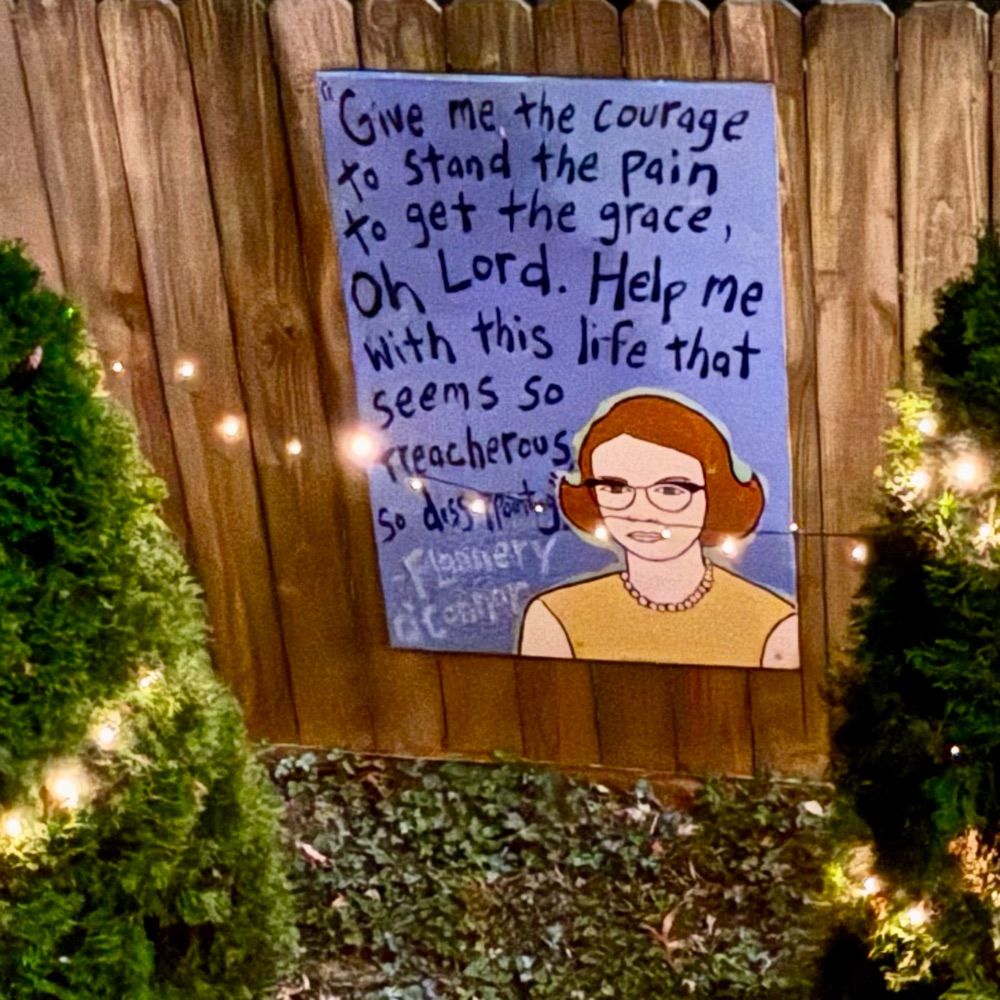 "Give me the courage
to stand the pain
to get the grace,
Oh Lord. Help me
with this life that
seems so
treacherous
so dissapointing."
-Flannery
O'Connor